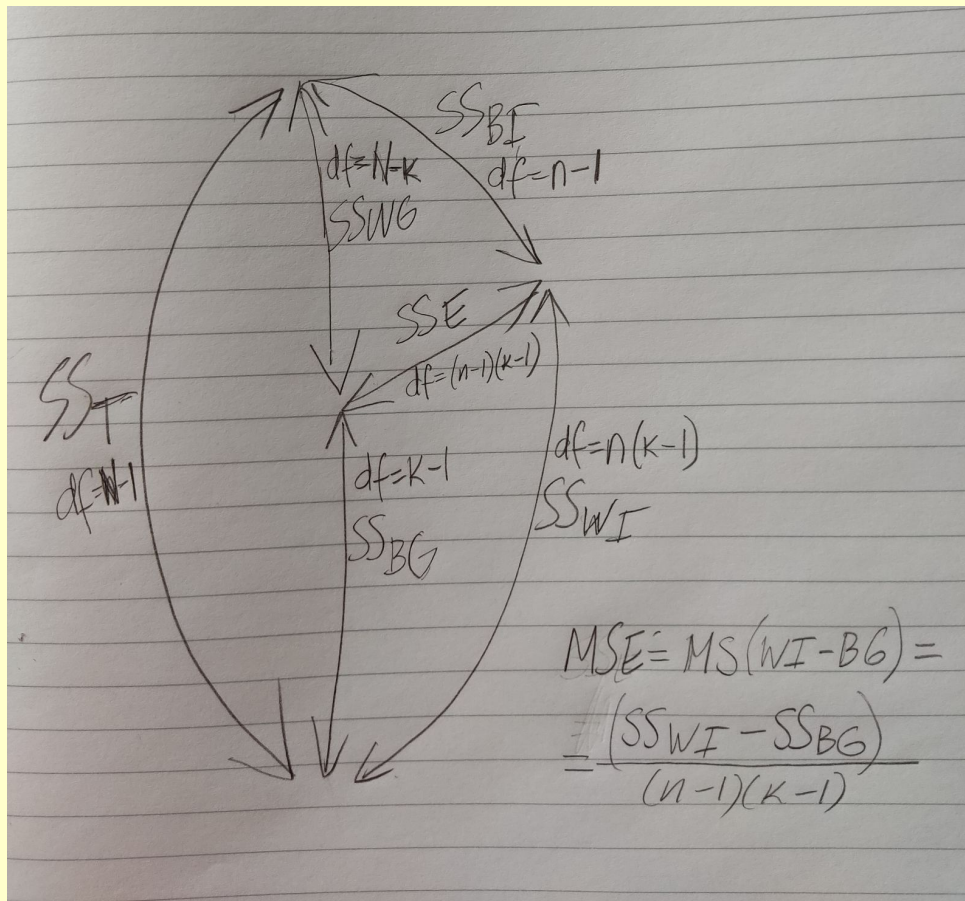 SS_BI
df=n-1
df=N-k
SSWG
SSE
df=(n-1)(k-1)
SS_T
df=N-1
df=k-1
SS_BG
df=n(k-1)
SS_WI
MSE≡MS(WI-BG)=
=(SS_WI-SS_BG)
(n-1)(k-1)